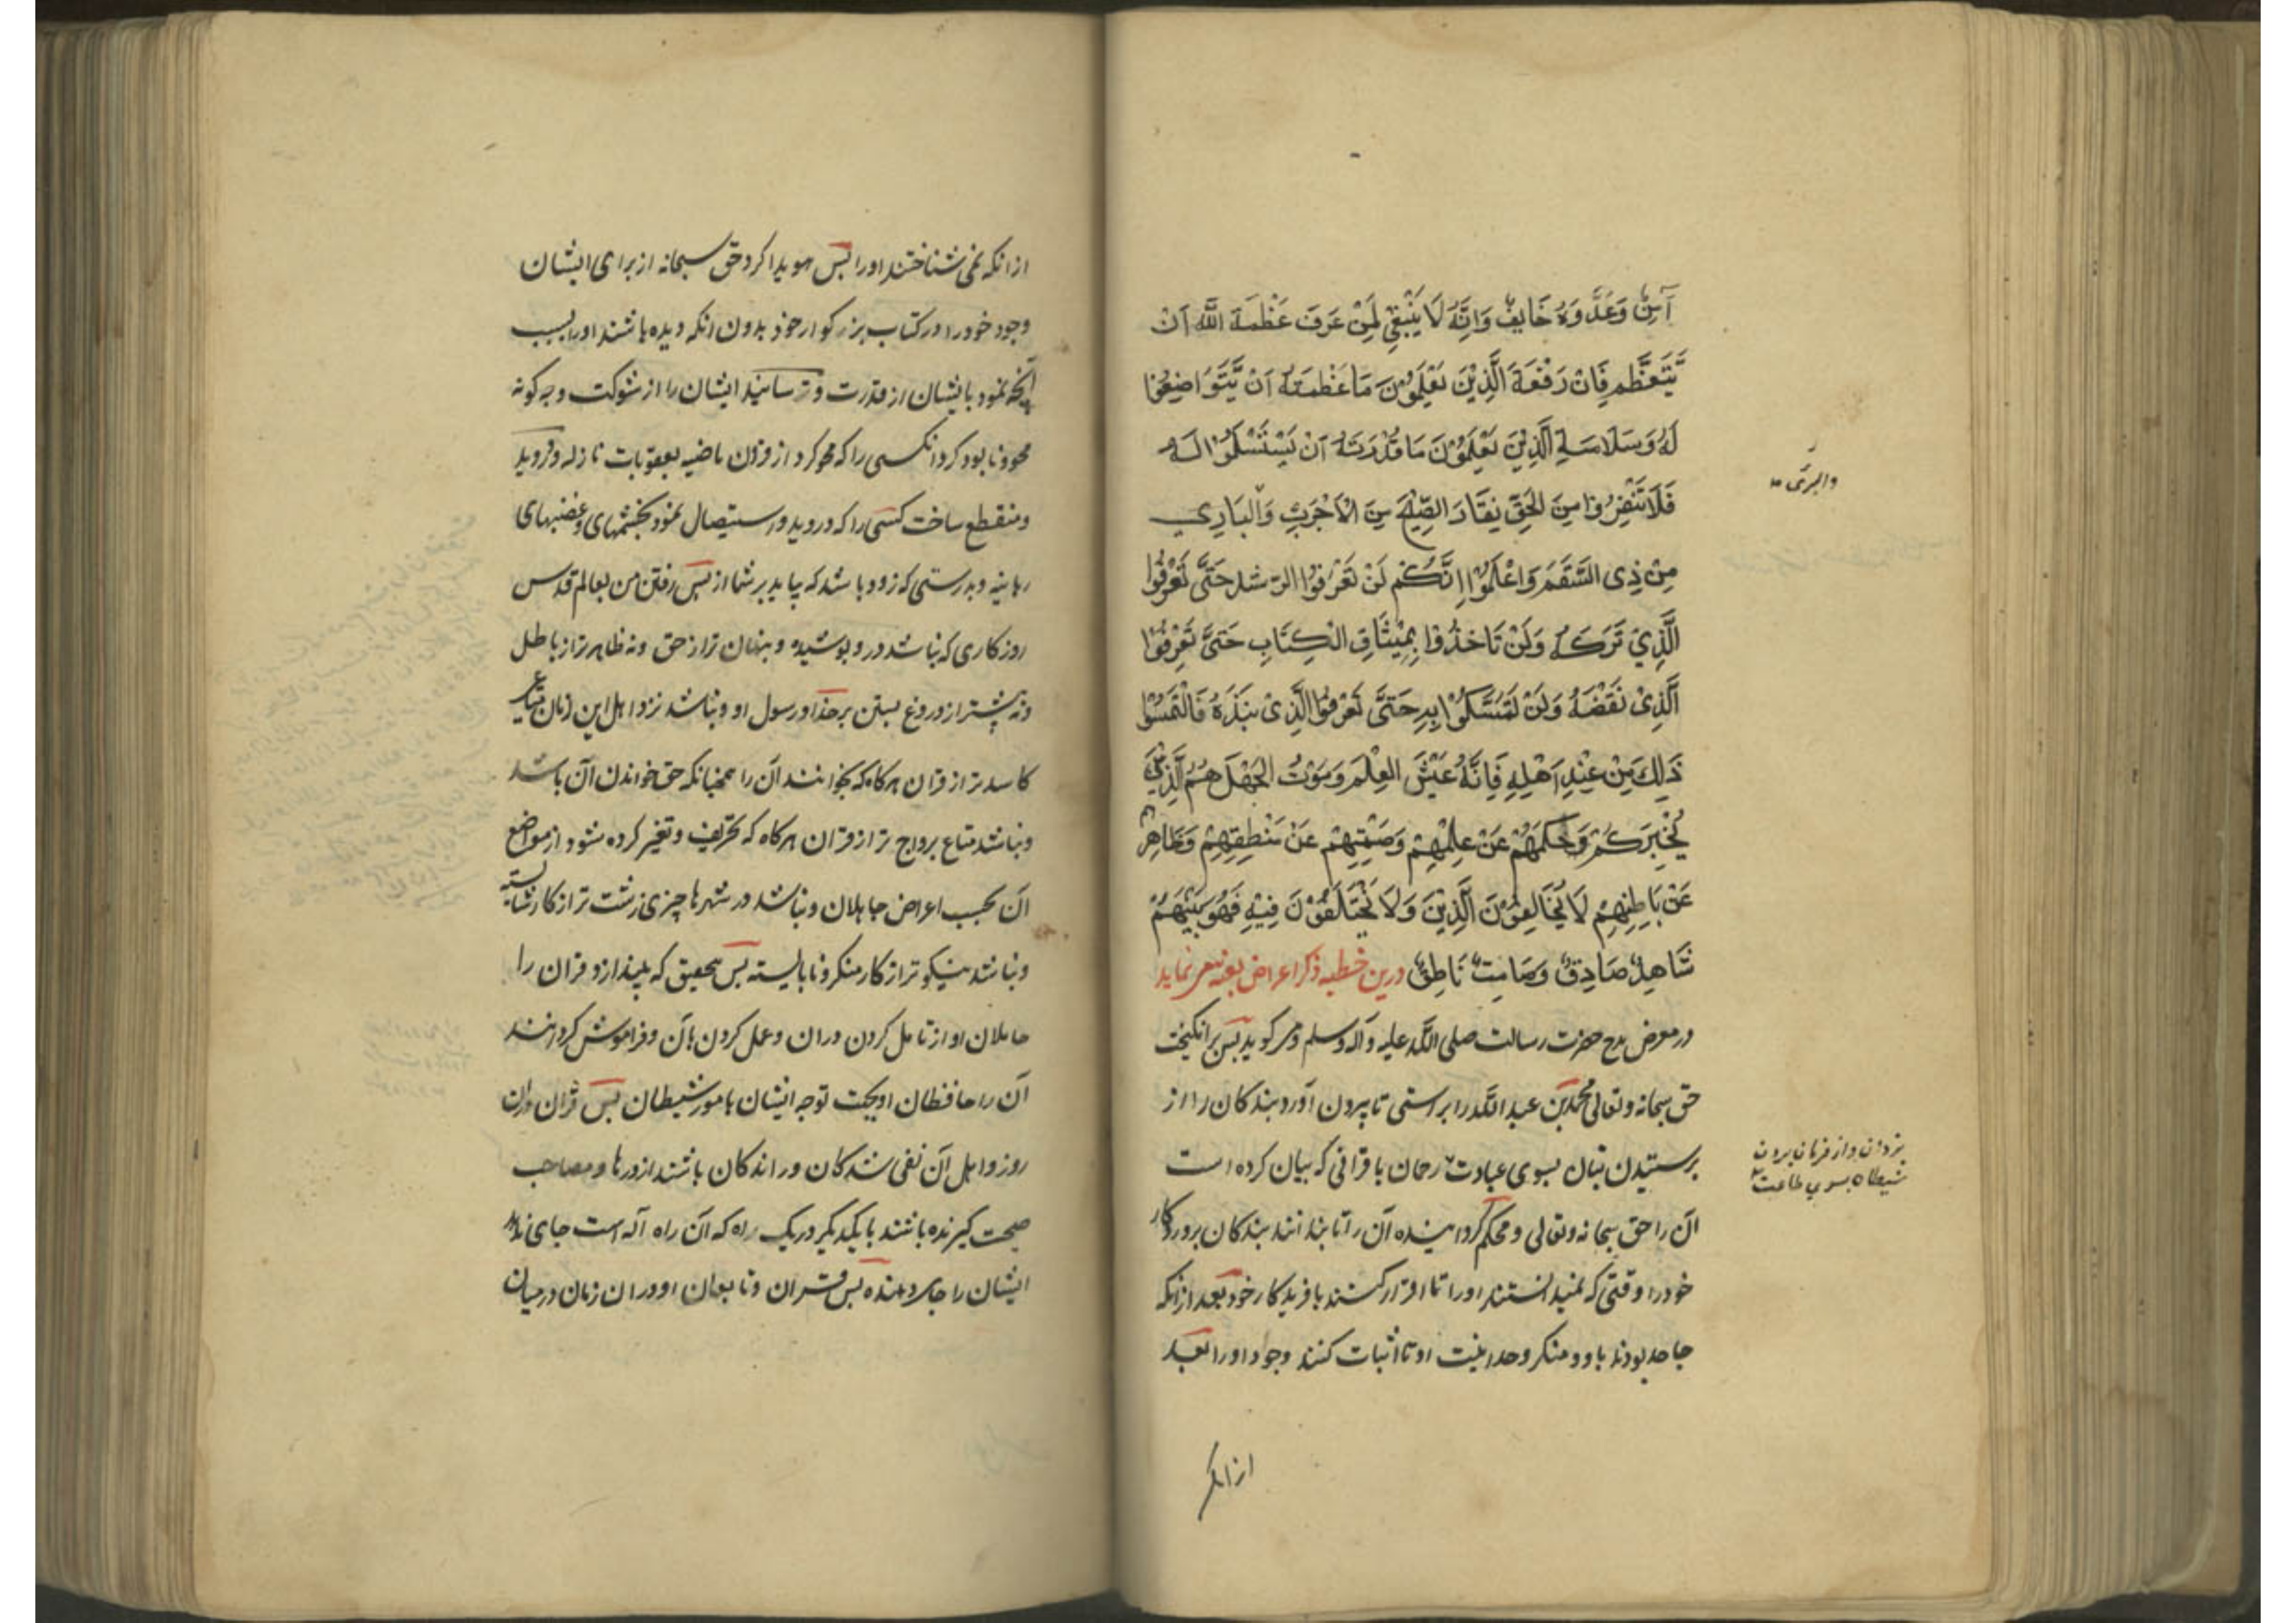 آمِنٌ وَعَدُّوَهُ خَایِفٌ وَاِنَّهُ لَا یَنْبَغِی لِمَنْ عَرَفَ عَظْمَةَ اللَّه اَنْ
یَّتَعَظَّم فَاِنَّ رَفْعَةَ الَّذِیْنَ یَعْلَمُوْنَ مَا عَظْمَتُهُ اَنْ یَّتَوَاضِعُوْا
لَهُ وَسَلَامَةِ الَّذِیْنَ یَعْلَمُوْنَ مَا قُدْرَتُهُ اَنْ یَسْتَسْلِمُوْا لَهُ
فَلَا تَنْفِرُوْا مِنَ الْحَقِّ نِفَارَ الصَّحِیْحِ مِنَ الْاَجْرَبِ وَالْبَارِی
والبرئ
مِنْ ذِی السَّقَمِ وَاعْلَمُوْا اِنَّکُمْ لَنْ تَعْرِفُوْا الرُّشْدَ حَتَّی تَعْرِفُوْا
الَّذِیْ تَرَکَهُ وَلَنْ تَاخُذُوْا بِمِیْثَاقِ الْکِتَابِ حَتَّی تَعْرِفُوْا
الَّذِیْ نَقَضَهُ وَلَنْ تَمَسَّکُوْا بِهِ حَتَّی تَعْرِفُوْا الَّذِیْ نَبَذَهُ فَالْتَمِسُوْا
ذَلِکَ مِنْ عِنْدِ اَهْلِهِ فَاِنَّهُ عَیْشُ العِلْمِ وَمَوْتُ الْجَهْلِ هُمُ الَّذِیْنَ
یُخْبِرُکُمْ وَحُکْمُهُمْ عَنْ عِلْمِهِمْ وَصَمْتِهِمْ عَنْ مَنْطِقِهِمْ وَظَاهِرُهُمْ
عَنْ بَاطِنِهِمْ لَا یُخَالِفُوْنَ الَّذِیْنَ وَلَا یَخْتَلِفُوْنَ فِیْهِ فَهُوَ بَیْنَهُمْ
شَاهِدٌ صَادِقٌ وَصَامِتٌ نَاطِقٌ درین خطبه ذکر اعراض بعثه پیغمبر نماید
در معرض مدح حضرت رسالت صلی الله علیه و آله وسلم و می کوید پس برانکیخت
حق سبحانه وتعالی محمد بن عبد الله را براستی تا بیرون آورد بندکان را از
پرستیدن بتان بسوی عبادت رحمان با قرآنی که بیان کرده است
یزدان و از فرمان بردن
شیطان بسوی طاعت
آن را حق سبحانه وتعالی و محکم کردانیده آن را تا بدانند بندکان پروردکار
خود را وقتی که نمیدانستند او را تا اقرار کنند بافریدکار خود بعد ازانکه
جاحد بودند باو و منکر وحدانیت او تا اثبات کنند وجود او را بعد
ازانکه
ازانکه نمی شناختند او را پس هویدا کرد حق سبحانه از برای ایشان
وجود خود را در کتاب بزرکوار خود بدون انکه دیده باشند او را بسبب
آنچه نمود بایشان از قدرت و ترسانید ایشان را از شوکت و چه کونه
محو و نابود کرد انکسی را که محو کرد از قرون ماضیه بعقوبات نازله و درویده
و منقطع ساخت کسی را که دروید و استیصال نمود بخشمهای و غضبهای
ربانیه و بدرستی که زود باشد که بیاید بر شما از پس رفتن من بعالم قدس
روزکاری که نباشد در و پوشیده و پنهان تر از حق و نه ظاهر تر از باطل
و نه بیشتر از دروغ بستن بر خدا و رسول او و نباشد نزد اهل این زمان متاعی
کاسدتر از قران هرکاه که بخوانند آن را همچنانکه حق خواندن آن باشد
و نباشد متاع برواج تر از قران هرکاه که تحریف و تغیر کرده شود از مواضع
آن بحسب اعراض جاهلان و نباشد در شهرها چیزی زشت تر از کار شایسته
و نباشد نیکوتر از کار منکر و نابایسته پس بتحقیق که بیندازد قران را
حاملان او از تامل کردن دران و عمل کردن بآن و فراموش کردانند
آن را حافظان او بجهت توجه ایشان بامور شیطان پس قران دران
روز و اهل آن نفی شدکان و راندکان باشند از درها و مصاحب
صحبت کیرنده باشند با یکدیکر در یک راه که آن راه آله است جای ندهد
ایشان را جای دهنده پس قران و تابعان او در ان زمان درمیان